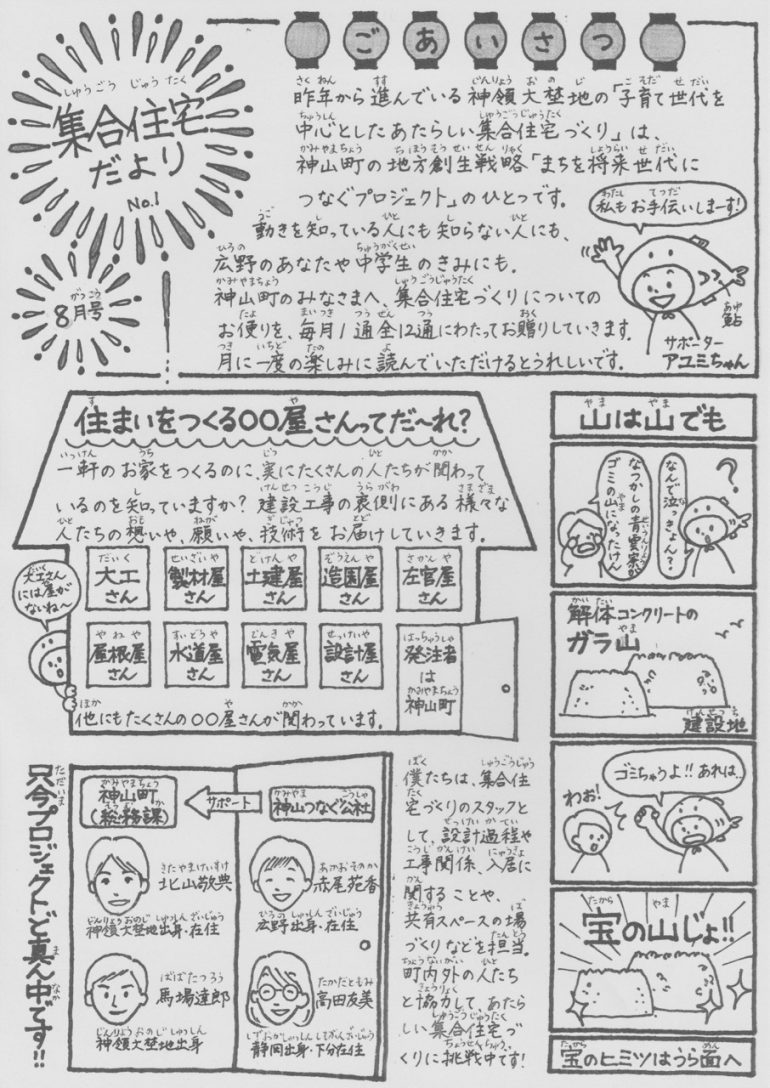 集合住宅
だより
No.1
8月号
ごあいさつ
昨年から進んでいる神領大埜地の「子育て世代を
中心としたあたらしい集合住宅づくり」は、
神山町の地方創生戦略「まちを将来世代に
つなぐプロジェクト」のひとつです。
動きを知っている人にも知らない人にも、
広野のあなたや中学生のきみにも。
神山町のみなさまへ、集合住宅づくりについての
お便りを、毎月1通全12通にわたってお贈りしていきます。
月に一度の楽しみに読んでいただけるとうれしいです。
私もお手伝いしまーす!
鮎
サポーター
アユミちゃん
住まいをつくる〇〇屋さんってだ〜れ?
一軒のお家をつくるのに、実にたくさんの人たちが関わって
いるのを知っていますか?建設工事の裏側にある様々な
人たちの想いや、願いや、技術をお届けしていきます。
大工さん
製材屋さん
土建屋さん
造園屋さん
左官屋さん
大工さん
には屋が
ないね〜
屋根屋さん
水道屋さん
電気屋さん
設計屋さん
発注者
は
神山町
他にもたくさんの〇〇屋さんが関わっています。
山は山でも
なんで泣っきょん?
なつかしの青雲寮が
ゴミの山になったけん
解体コンクリートの
ガラ山
建設地
ゴミちゃうよ!!あれは…
わぉ!
宝の山じょ!!
宝のヒミツはうら面へ
只今プロジェクトど真ん中です!!
神山町
(総務課)
サポート
神山つなぐ公社
北山敬典
神領大埜地出身・在住
赤尾苑香
広野出身・在住
馬場達郎
神領大埜地出身
高田友美
静岡出身・下分在住
僕たちは、集合住
宅づくりのスタッフと
して、設計過程や
工事関係、入居に
関することや、
共有スペースの場
づくりなどを担当。
町内外の人たち
と協力して、あたら
しい集合住宅づ
くりに挑戦中です!